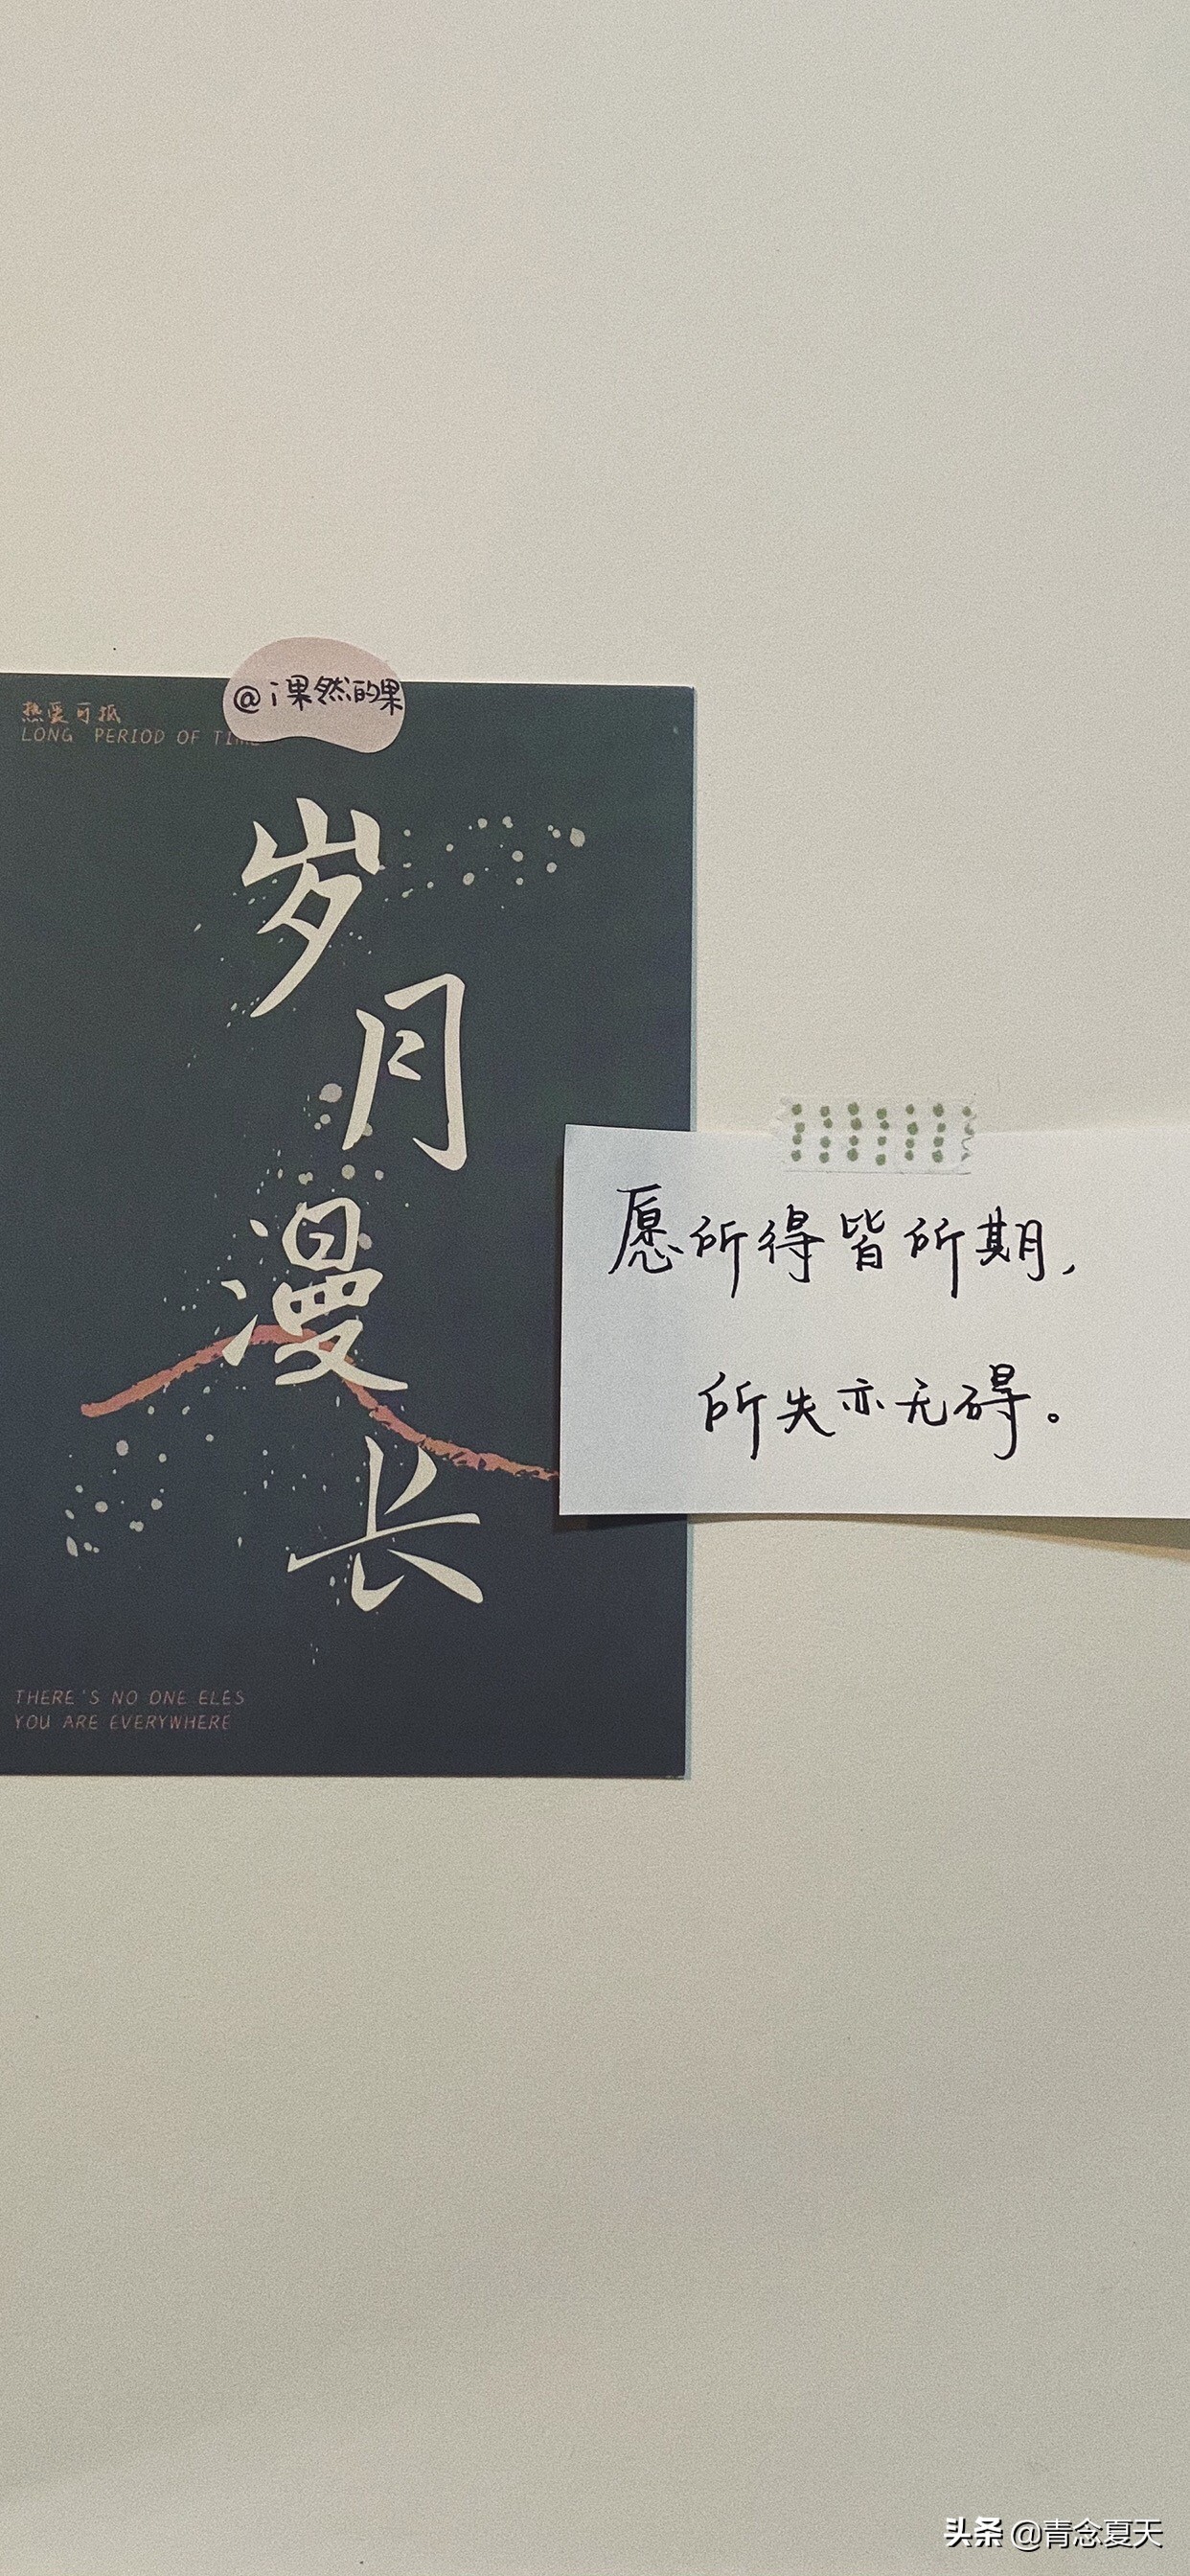 @i果然的果
热爱可抵
LONG PERIOD OF TIME
岁
月
漫
长
愿所得皆所期,
所失亦无碍。
THERE'S NO ONE ELES
YOU ARE EVERYWHERE
头条 @青念夏天